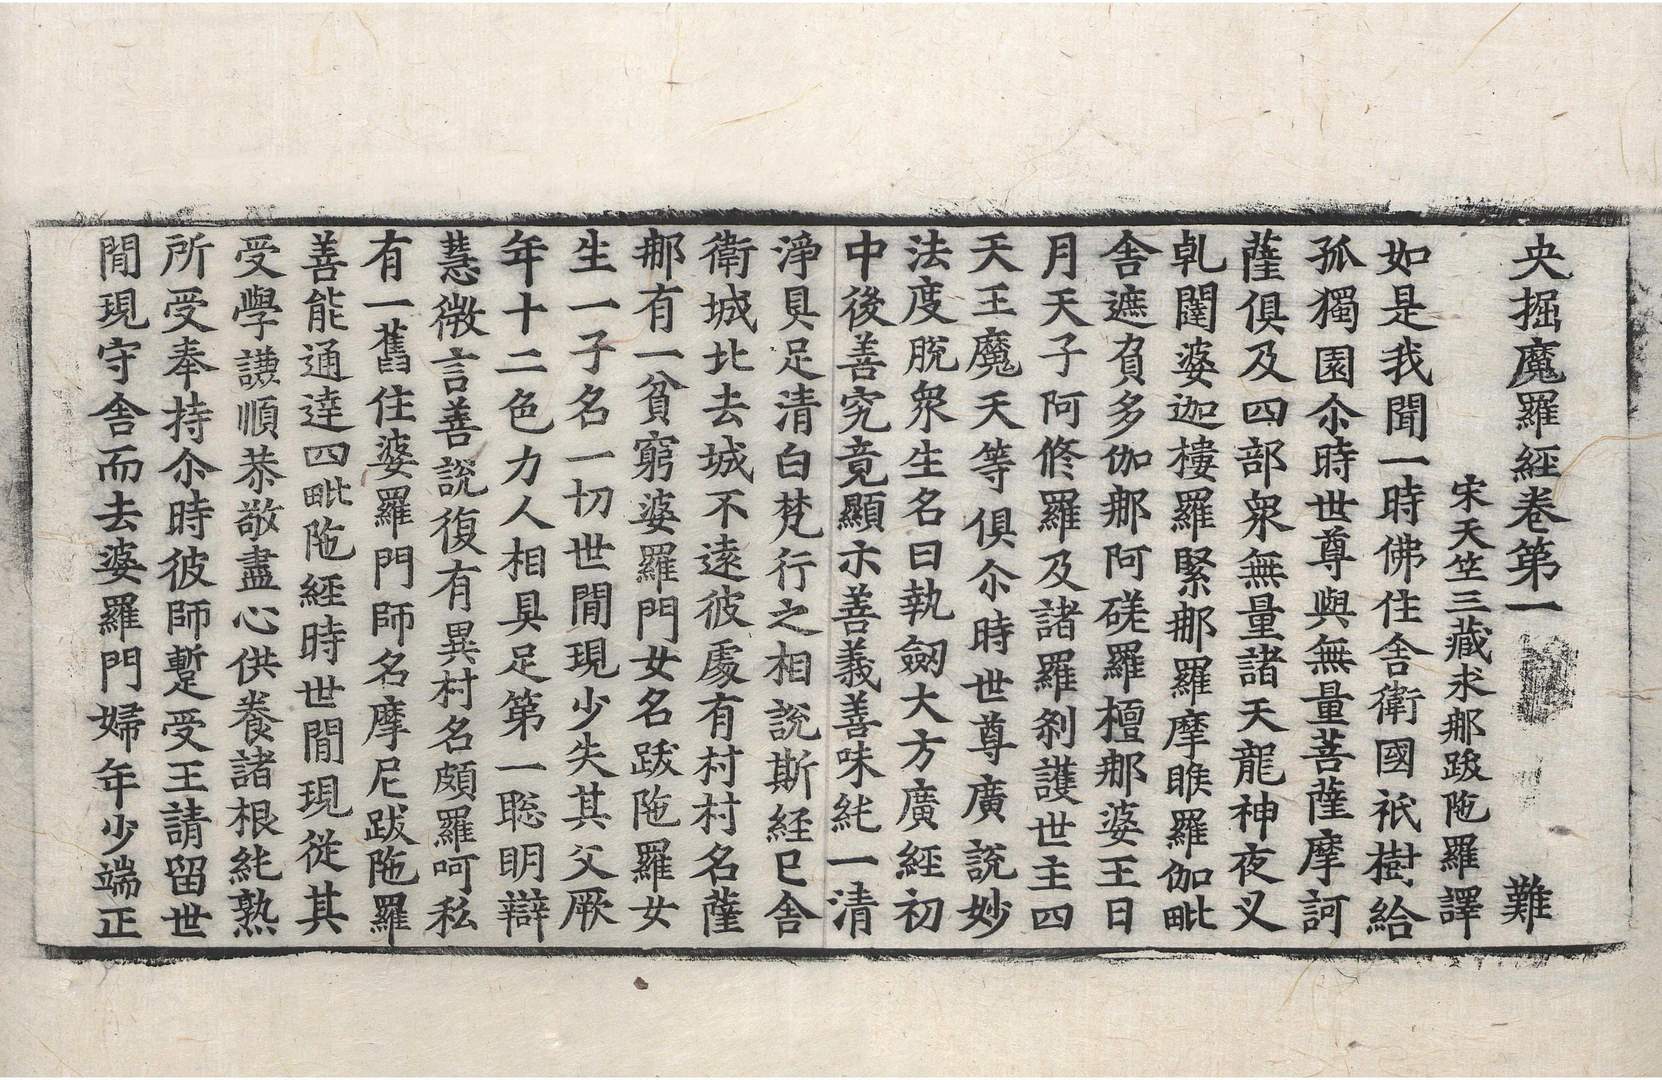 央掘魔羅經卷第一 難
宋天竺三藏求那跋陁羅譯
如是我聞一時佛住舍衛國祇樹給
孤獨園尒時世尊與無量菩薩摩訶
薩俱及四部衆無量諸天龍神夜叉
乹闥婆迦樓羅緊那羅摩睺羅伽毗
舍遮負多伽那阿磋羅檀那婆王日
月天子阿脩羅及諸羅刹護世主四
天王魔天等俱尒時世尊廣說妙
法度脫衆生名曰執劒大方廣經初
中後善究竟顯示善義善味純一清
淨具足清白梵行之相說斯經已舍
衛城北去城不遠彼處有村村名薩
那有一貧窮婆羅門女名跋陁羅女
生一子名一切世閒現少失其父厥
年十二色力人相具足第一聡明辯
慧微言善說復有異村名頗羅呵私
有一舊住婆羅門師名摩尼跋陁羅
善能通達四毗陁經時世閒現從其
受學謙順恭敬盡心供養諸根純熟
所受奉持尒時彼師蹔受王請留世
閒現守舍而去婆羅門婦年少端正